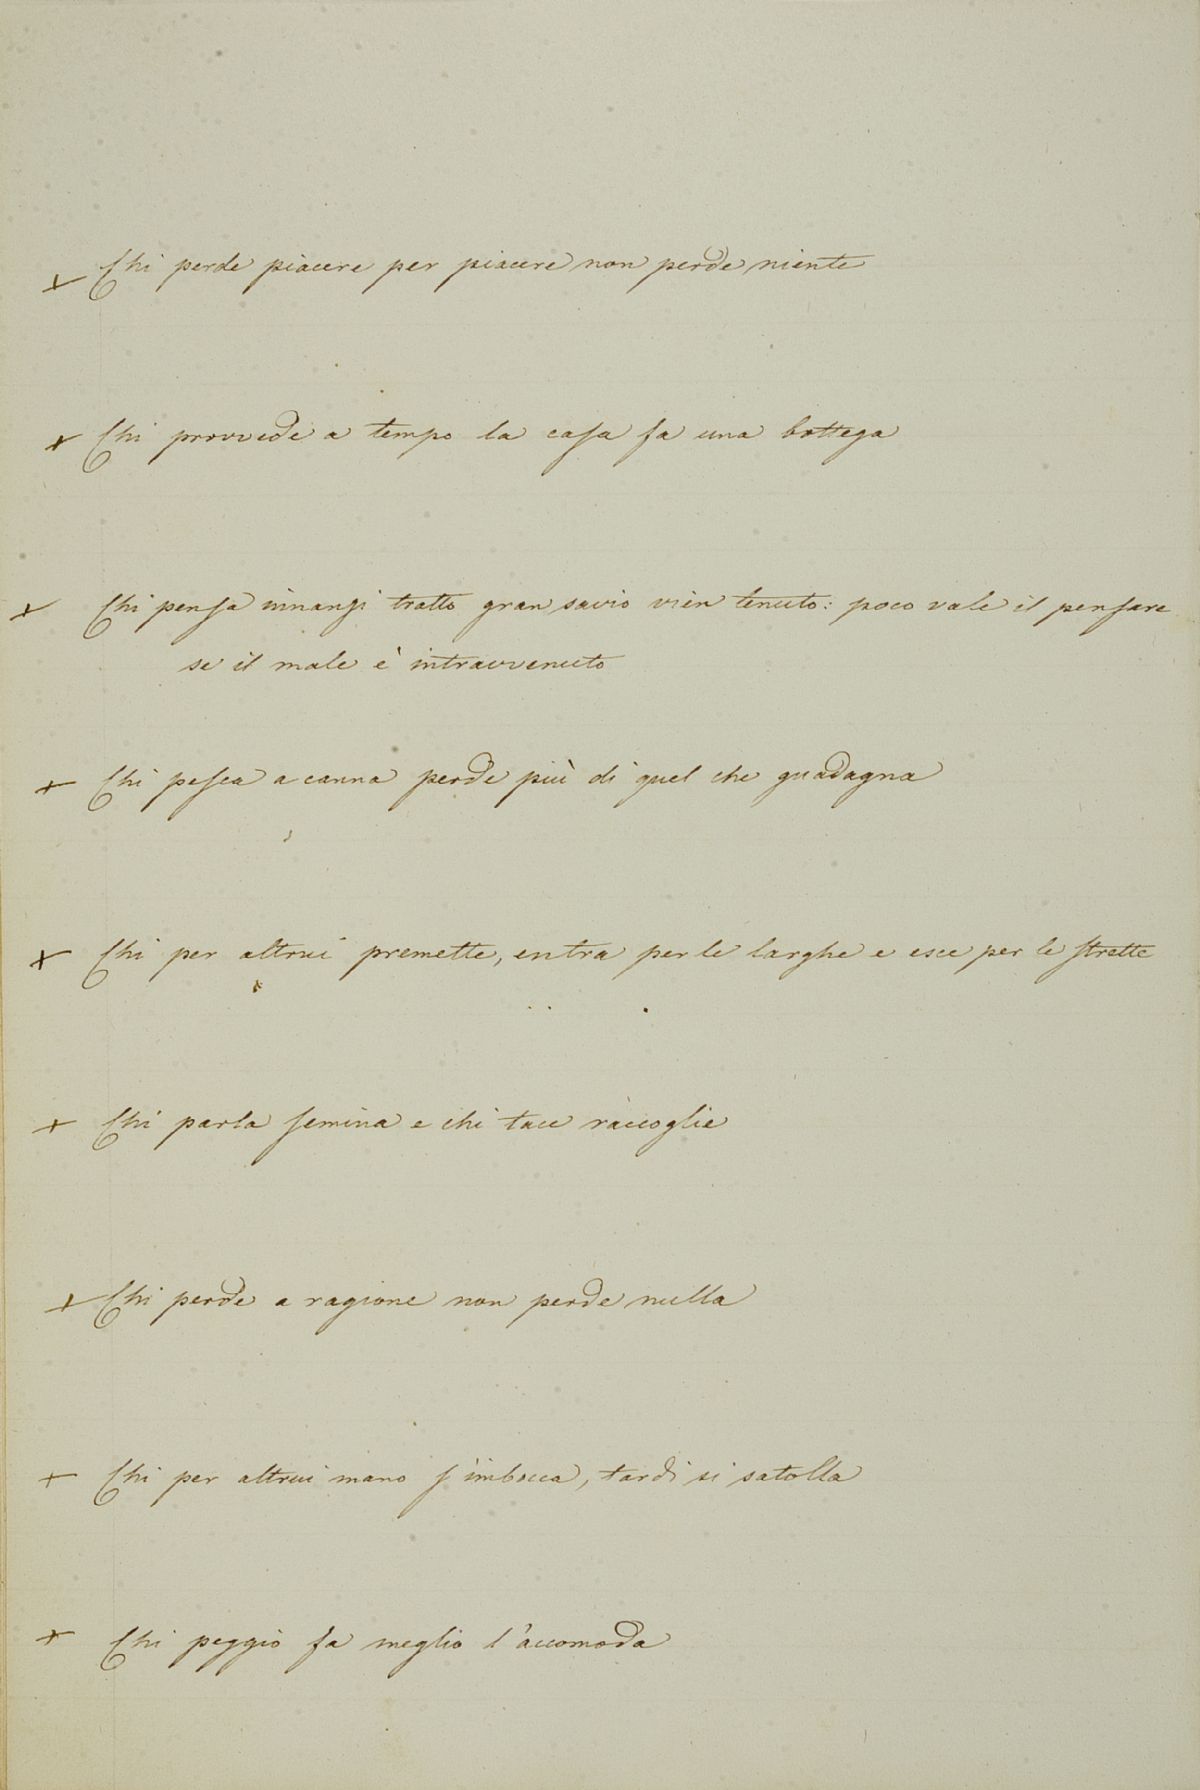 + Chi perde piacere per piacere non perde niente
+ Chi provvede a tempo la casa fa una bottega
+ Chi pensa innanzi tratto gran savio vien tenuto: poco vale il pensare
se il male è intravvenuto
+ Chi pesca a canna perde più di quel che guadagna
+ Chi per altrui premette, entra per le larghe e esce per le strette
+ Chi parla semina e chi tace raccoglie
+ Chi perde a ragione non perde nulla
+ Chi per altrui mano s'imbocca, tardi si satolla
+ Chi peggio fa meglio l'accomoda